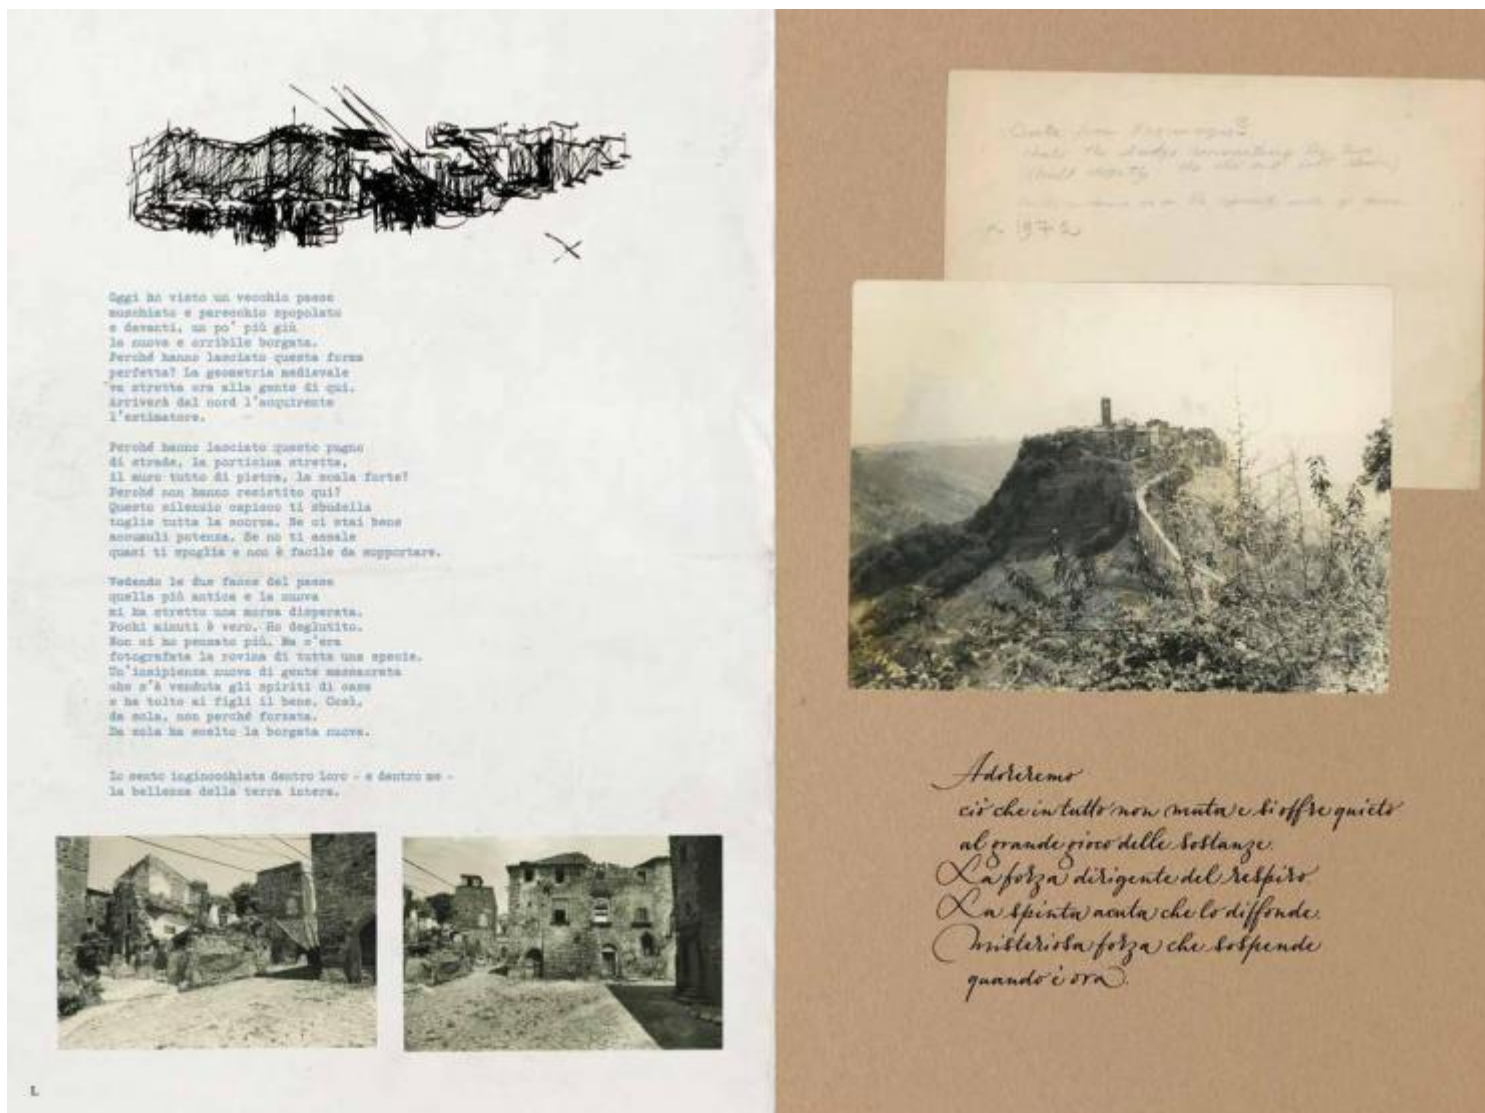 Oggi ho visto un vecchio paese
muschiato e parecchio spopolato
e davanti, un po' più giù
la nuova e orribile borgata.
Perché hanno lasciato questa forma
perfetta? La geometria medievale
va stretta ora alla gente di qui.
Arriverà dal nord l'acquirente
l'estimatore.
Perché hanno lasciato questo pugno
di strade, la porticina stretta,
il muro tutto di pietra, la scala forte?
Perché non hanno resistito qui?
Questo silenzio capisco ti sbudella
toglie tutta la scorza. Se ci stai bene
accumuli potenza. Se no ti assale
quasi ti spoglia e non è facile da sopportare.
Vedendo le due facce del paese
quella più antica e la nuova
mi ha stretto una morsa disperata.
Pochi minuti è vero. Ho deglutito.
Non ci ho pensato più. Ma c'era
fotografata la rovina di tutta una specie.
Un'insipienza nuova di gente massacrata
che s'è venduta gli spiriti di casa
e ha tolto ai figli il bene. Così,
da sola, non perché forzata.
Da sola ha scelto la borgata nuova.
Io sento inginocchiata dentro loro - e dentro me -
la bellezza della terra intera.
L
the bridge connecting the two
1972
Adoreremo
ciò che in tutto non muta e si offre quieto
al grande gioco delle sostanze.
La forza dirigente del respiro
La spinta acuta che lo diffonde.
Misteriosa forza che sospende
quando è ora.